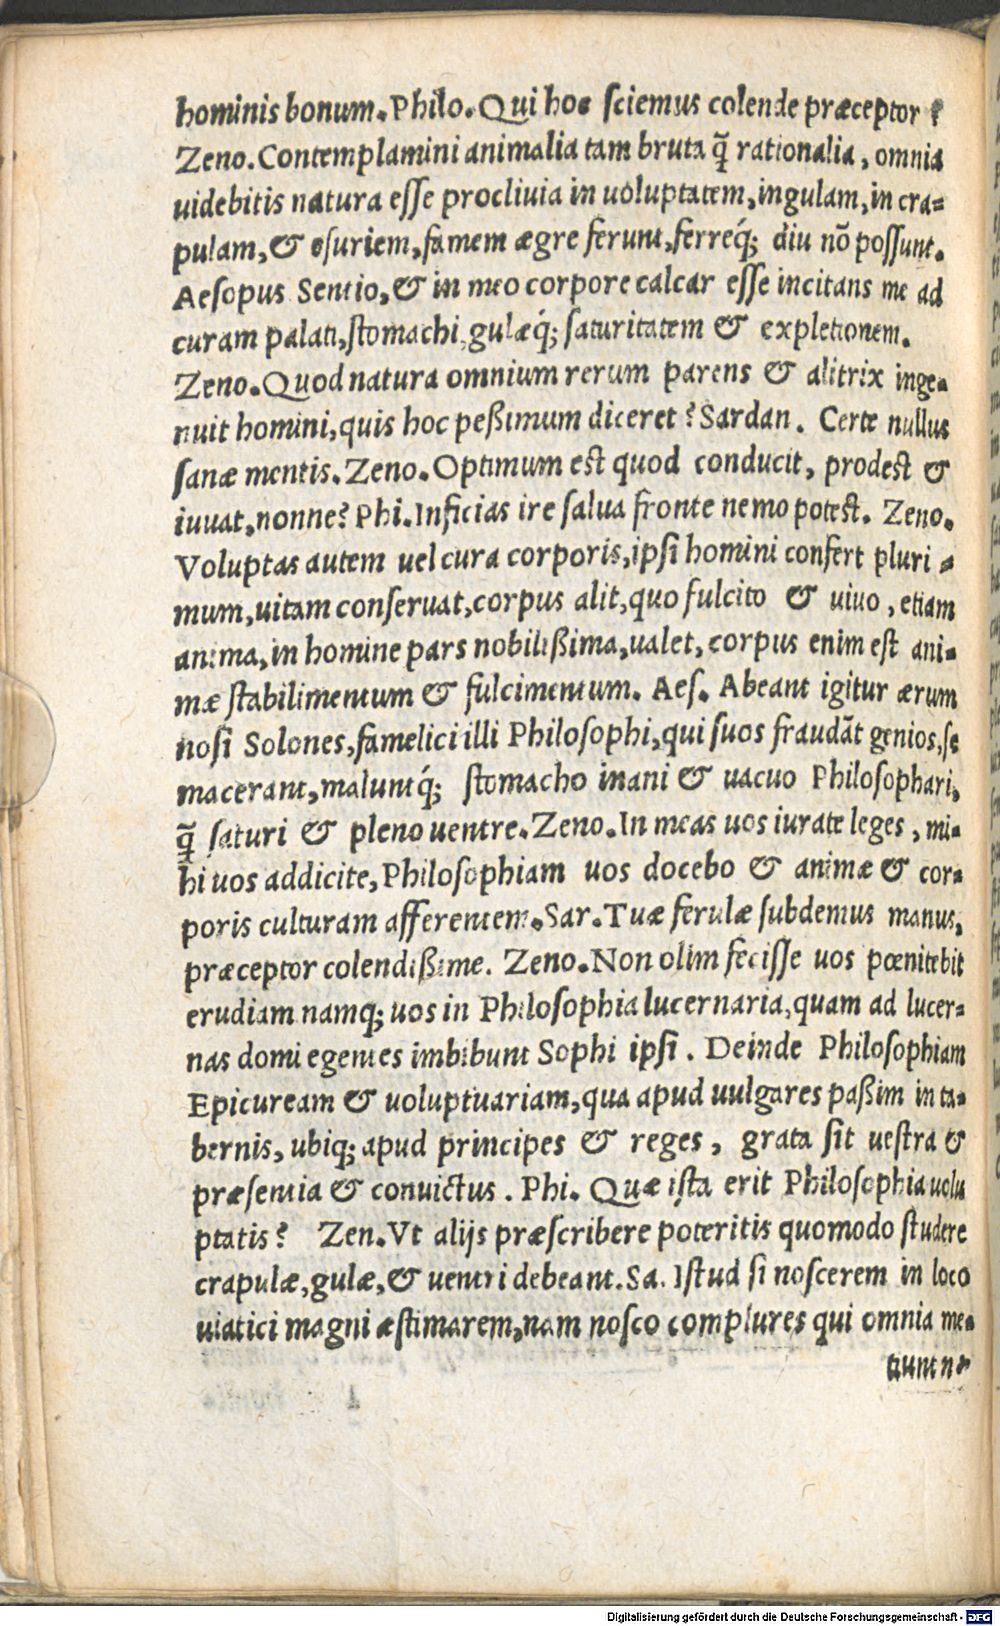 hominis bonum. Philo. Qui hoc sciemus colende præceptor ?
Zeno. Contemplamini animalia tam bruta q̃ rationalia, omnia
uidebitis natura esse procliuia in uoluptatem, in gulam, in cra-
pulam, & esuriem, famem ægre ferunt, ferreq́; diu nõ possunt.
Aesopus Sentio, & in meo corpore calcar esse incitans me ad
curam palati, stomachi, gulæq́; saturitatem & expletionem.
Zeno. Quod natura omnium rerum parens & alitrix inge-
nuit homini, quis hoc peßimum diceret ? Sardan. Certe nullus
sanæ mentis. Zeno. Optimum est quod conducit, prodest &
iuuat, nonne? Phi. Inficias ire salua fronte nemo potest. Zeno.
Voluptas autem uel cura corporis, ipsi homini confert pluri-
mum, uitam conseruat, corpus alit, quo fulcito & uiuo, etiam
anima, in homine pars nobilißima, ualet, corpus enim est ani-
mæ stabilimentum & fulcimentum. Aes. Abeant igitur ærum
nosi Solones, famelici illi Philosophi, qui suos fraudãt genios, se
macerant, maluntq́; stomacho inani & uacuo Philosophari,
q̃ saturi & pleno uentre. Zeno. In meas uos iurate leges, mi-
hi uos addicite, Philosophiam uos docebo & animæ & cor-
poris culturam afferentem. Sar. Tuæ ferulæ subdemus manus,
præceptor colendißime. Zeno. Non olim fecisse uos pœnitebit
erudiam namq; uos in Philosophia lucernaria, quam ad lucer-
nas domi egentes imbibunt Sophi ipsi. Deinde Philosophiam
Epicuream & uoluptuariam, qua apud uulgares paßim in ta-
bernis, ubiq; apud principes & reges, grata sit uestra &
præsentia & conuictus. Phi. Quæ ista erit Philosophia uolu
ptatis? Zen. Vt alijs præscribere poteritis quomodo studere
crapulæ, gulæ, & uentri debeant. Sa. Istud si noscerem in loco
uiatici magni æstimarem, nam nosco complures qui omnia me-
tiunt-
Digitalisierung gefördert durch die Deutsche Forschungsgemeinschaft - DFG